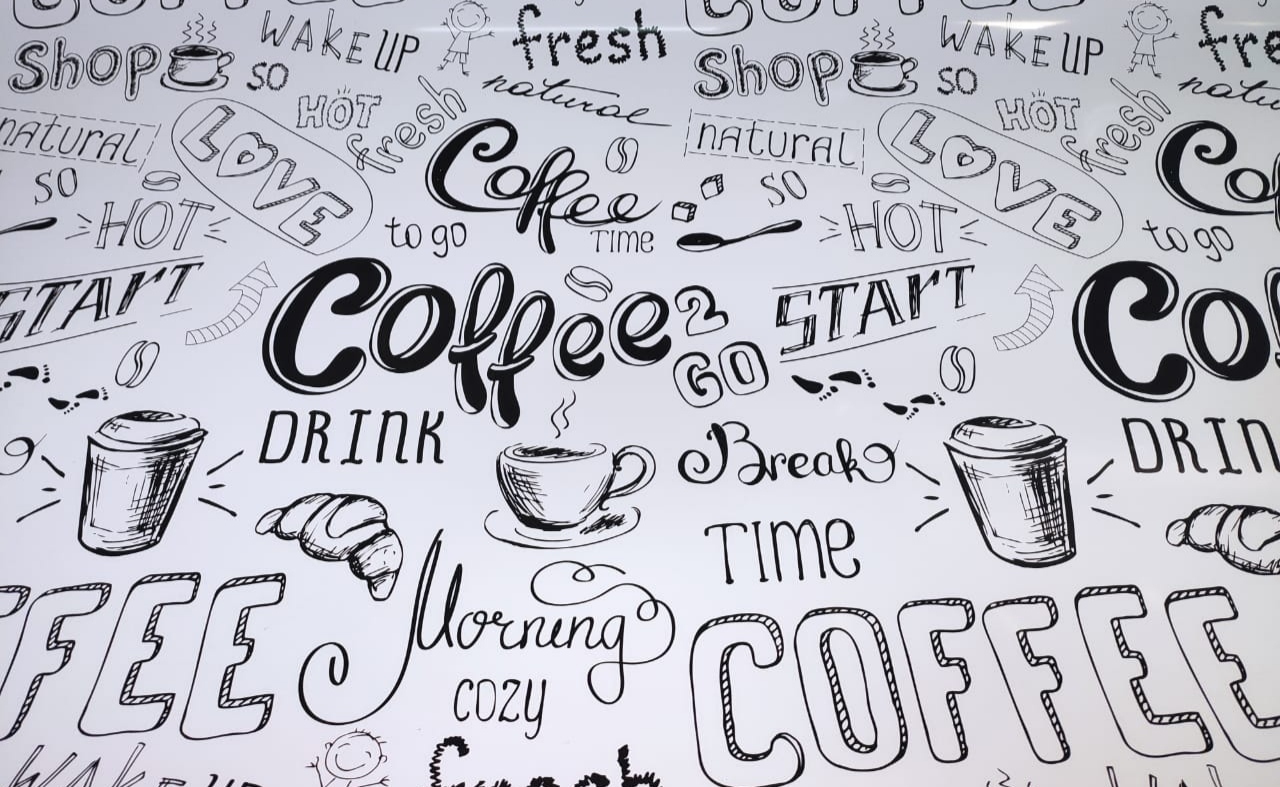 COFFEE
Shop WAKE UP fresh Shop WAKE UP fre
SO natural SO natu
natural LOVE HOT fresh Coffee natural LOVE HOT fresh Cof
SO HOT to go TIME SO HOT to go
START Coffee 2 GO START Co
DRINK Break DRIN
TIME
FFEE Morning COFFEE
cozy
WAKE UP fresh